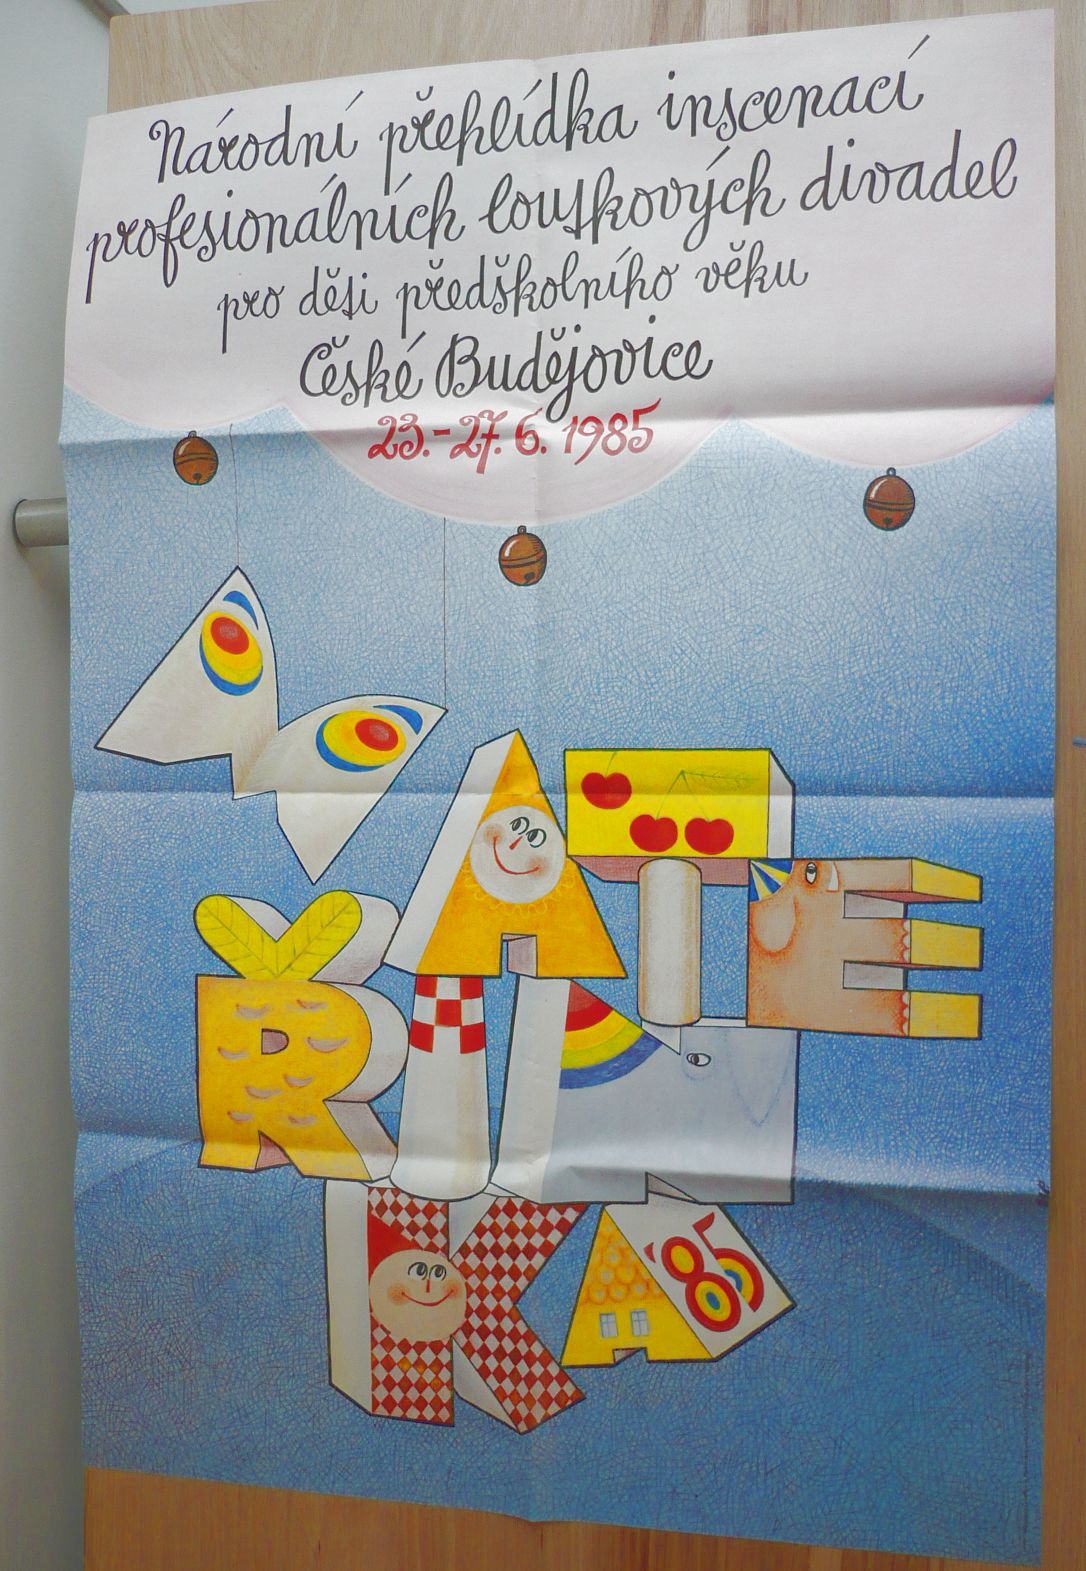 Národní přehlídka inscenací
profesionálních loutkových divadel
pro děti předškolního věku
České Budějovice
23.-27. 6. 1985
MATE
ŘIN
KA '85